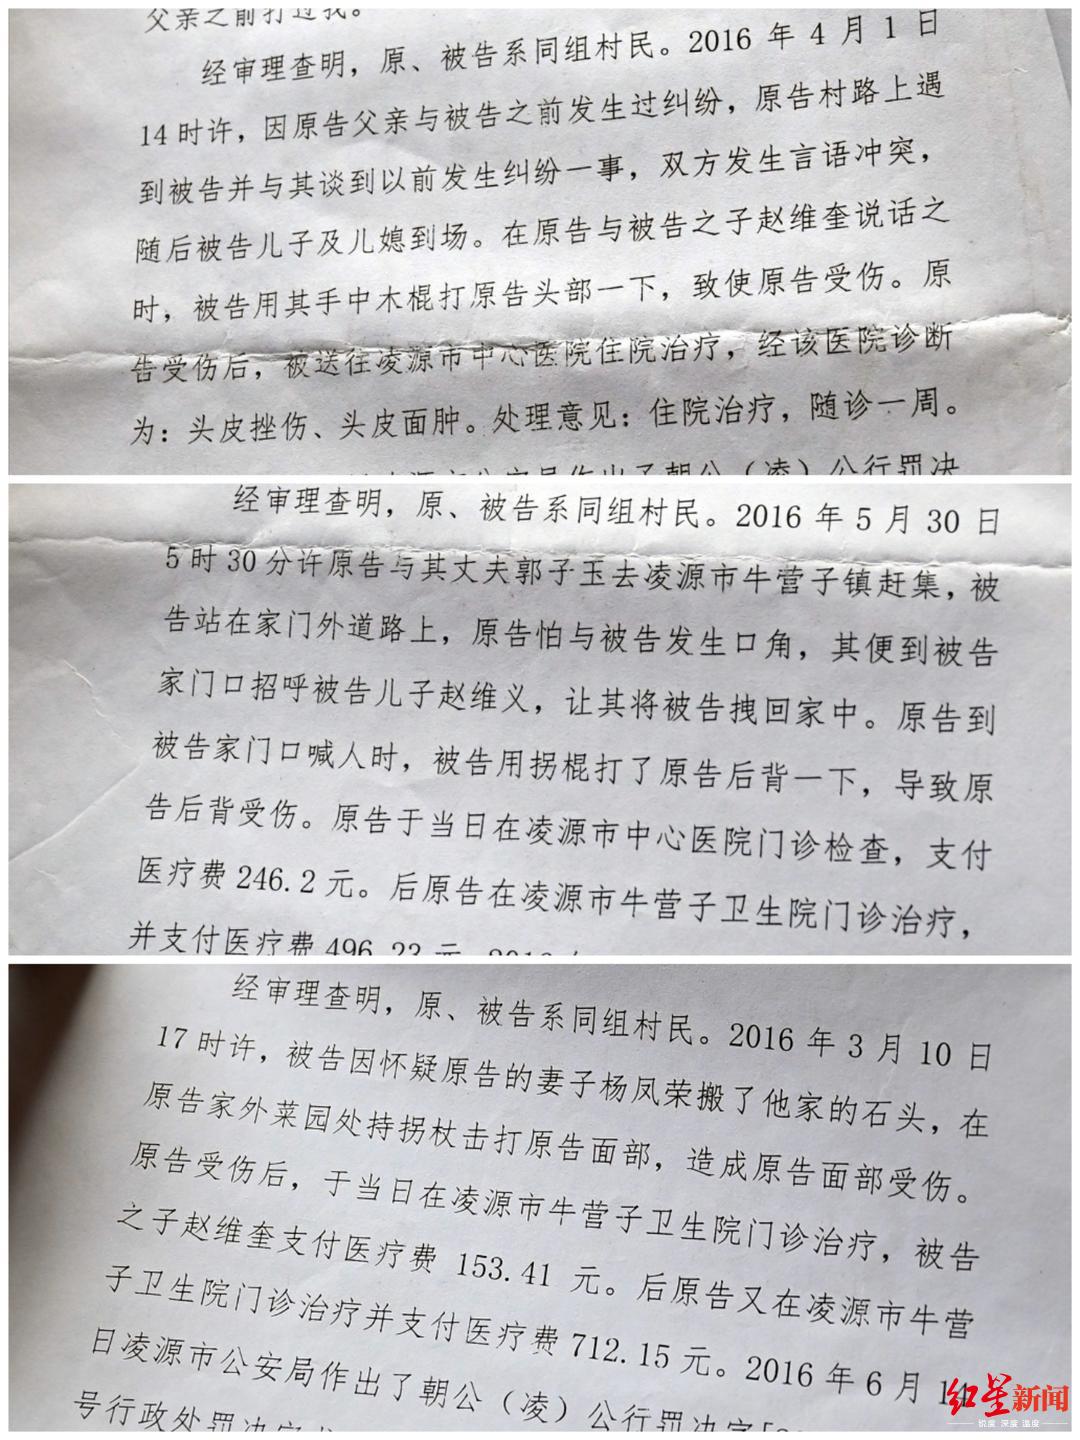 父亲之前打过我。
经审理查明，原、被告系同组村民。2016 年 4 月 1 日
14 时许，因原告父亲与被告之前发生过纠纷，原告村路上遇
到被告并与其谈到以前发生纠纷一事，双方发生言语冲突，
随后被告儿子及儿媳到场。在原告与被告之子赵维奎说话之
时，被告用其手中木棍打原告头部一下，致使原告受伤。原
告受伤后，被送往凌源市中心医院住院治疗，经该医院诊断
为：头皮挫伤、头皮面肿。处理意见：住院治疗，随诊一周。
凌源市公安局作出了朝公（凌）公行罚决
经审理查明，原、被告系同组村民。2016 年 5 月 30 日
5 时 30 分许原告与其丈夫郭子玉去凌源市牛营子镇赶集，被
告站在家门外道路上，原告怕与被告发生口角，其便到被告
家门口招呼被告儿子赵维义，让其将被告拽回家中。原告到
被告家门口喊人时，被告用拐棍打了原告后背一下，导致原
告后背受伤。原告于当日在凌源市中心医院门诊检查，支付
医疗费 246.2 元。后原告在凌源市牛营子卫生院门诊治疗，
并支付医疗费 496.23 元。2016 年
经审理查明，原、被告系同组村民。2016 年 3 月 10 日
17 时许，被告因怀疑原告的妻子杨凤荣搬了他家的石头，在
原告家外菜园处持拐杖击打原告面部，造成原告面部受伤。
原告受伤后，于当日在凌源市牛营子卫生院门诊治疗，被告
之子赵维奎支付医疗费 153.41 元。后原告又在凌源市牛营
子卫生院门诊治疗并支付医疗费 712.15 元。2016 年 6 月 14
日凌源市公安局作出了朝公（凌）公行罚决字[20
号行政处罚决定书
红星新闻
锐度 深度 温度